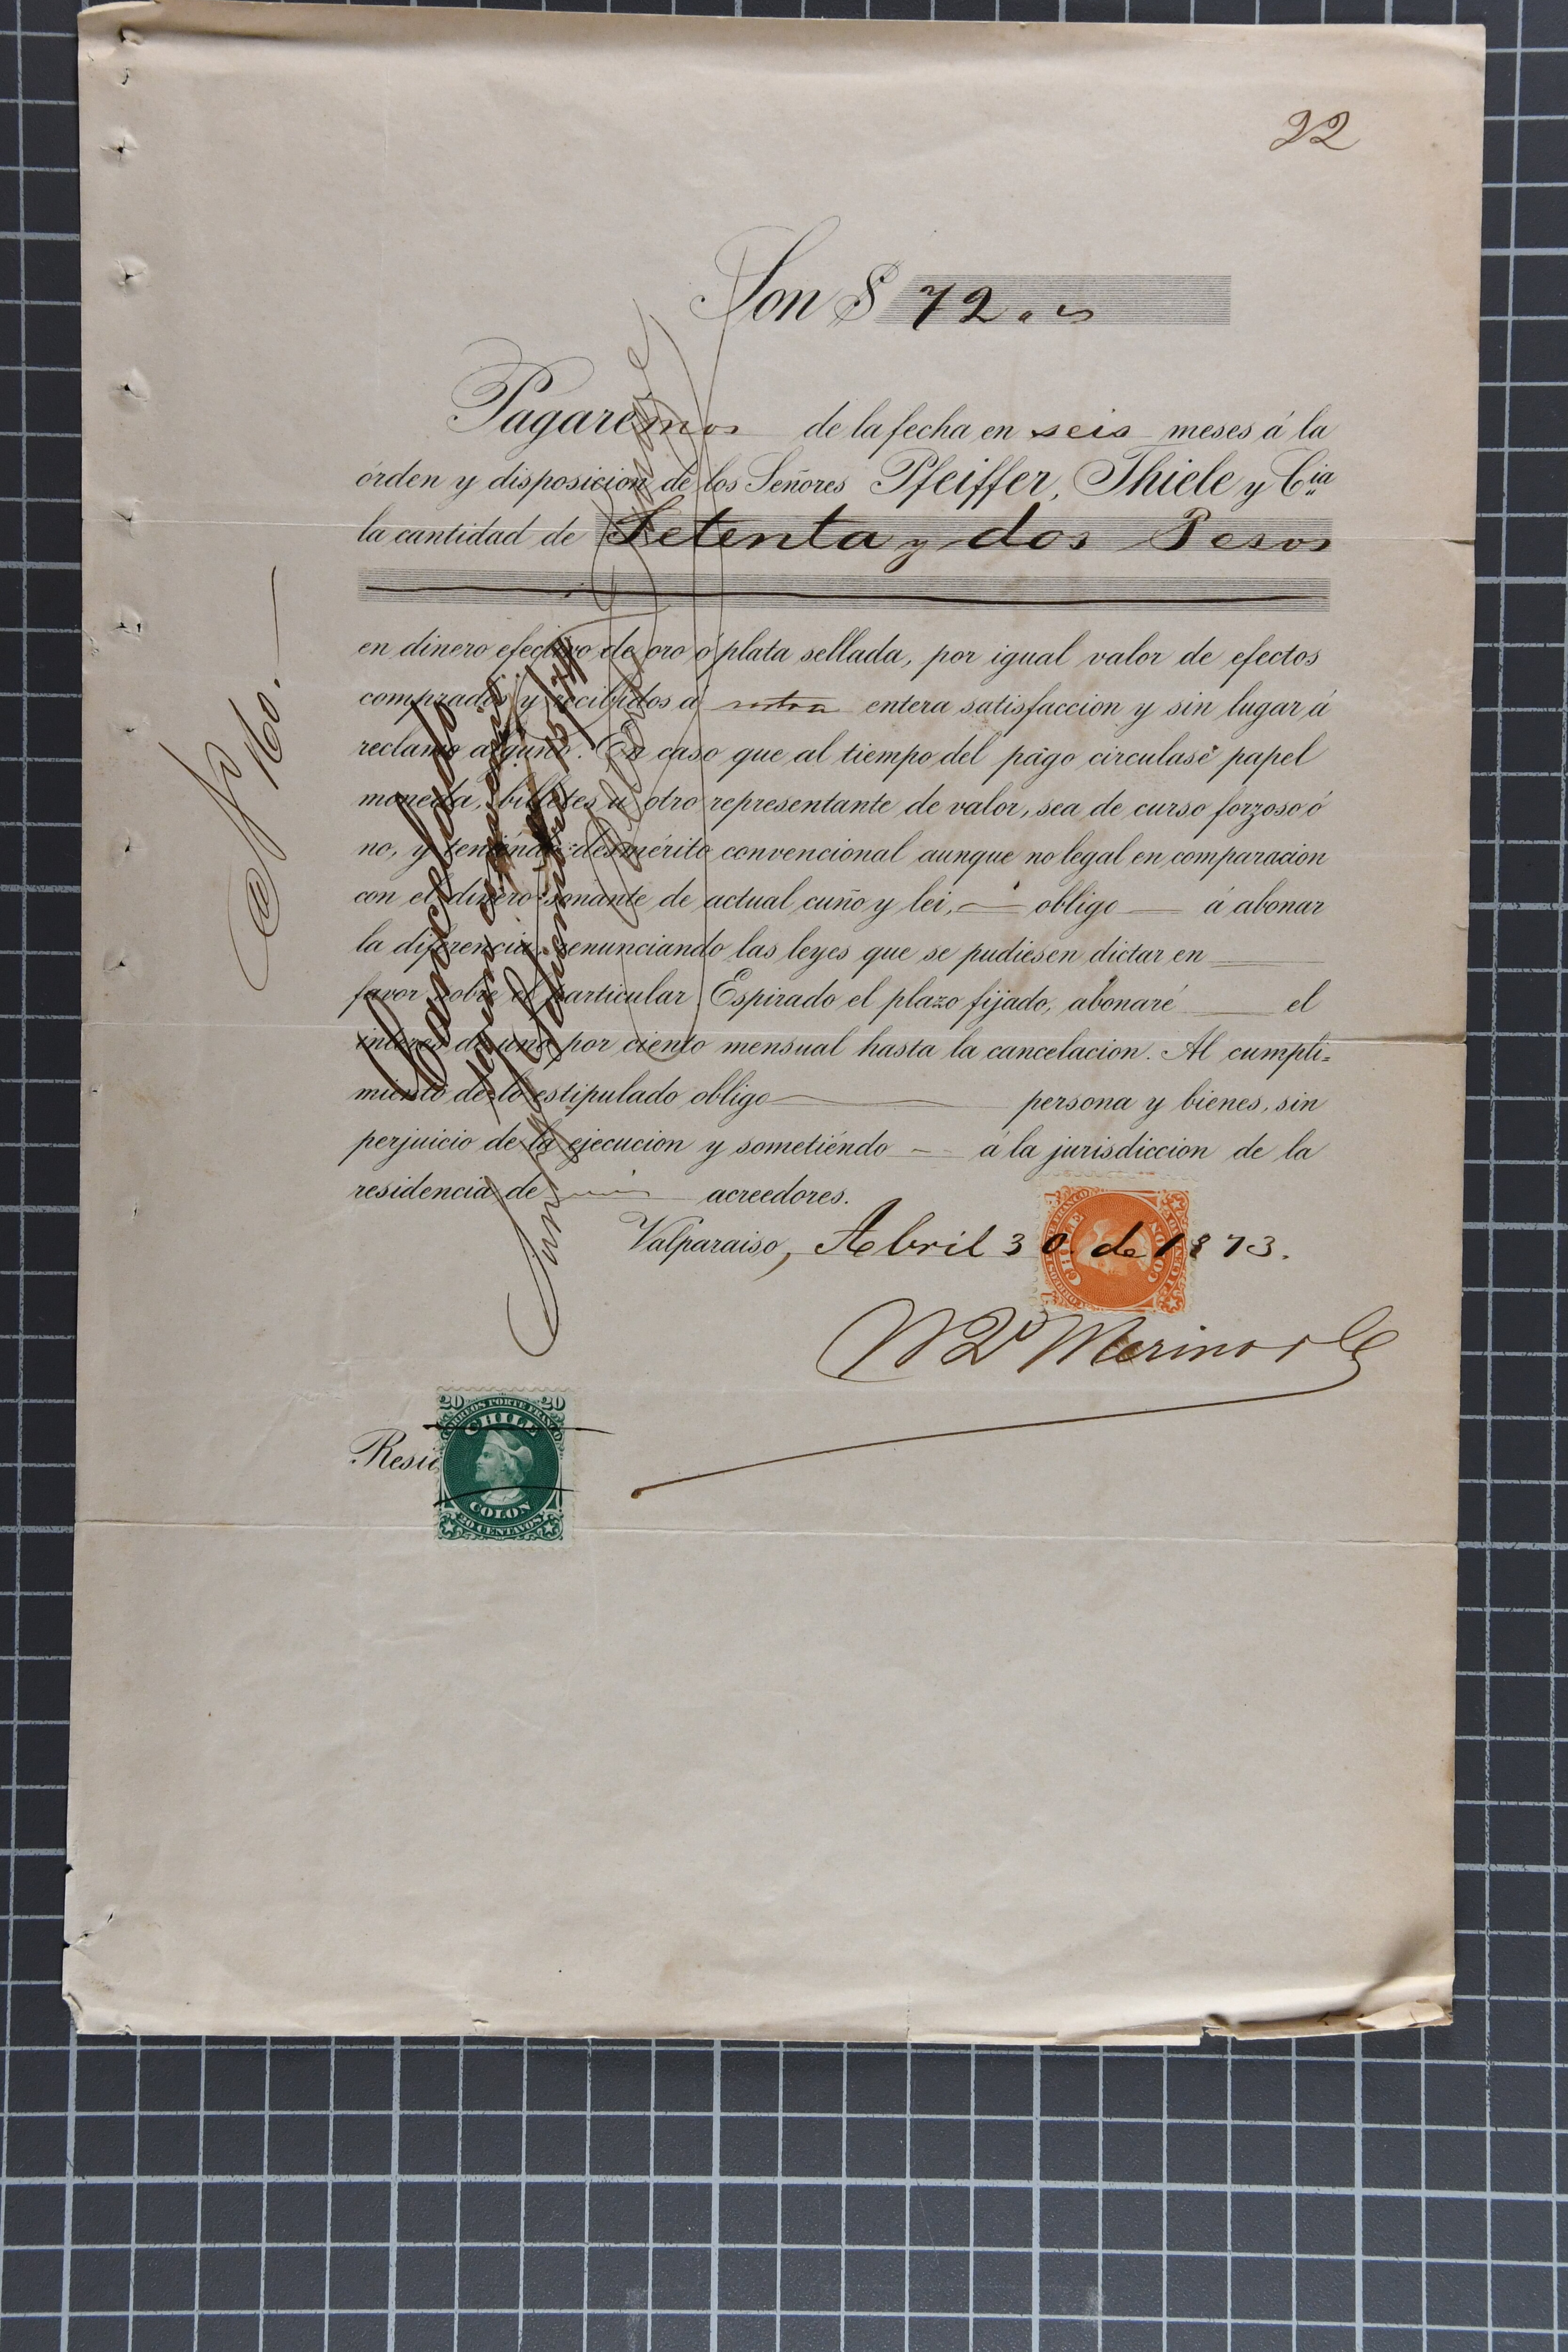 22
Son $ 72.
Pagarémos de la fecha en seis meses á la
órden y disposicion de los Señores Pfeiffer, Thiele y Cia
la cantidad de Setenta y dos Pesos
en dinero efectivo de oro ó plata sellada, por igual valor de efectos
comprados y recibidos á entera satisfaccion y sin lugar á
reclamo alguno. En caso que al tiempo del pago circulase papel
moneda, billetes ú otro representante de valor, sea de curso forzoso ó
no, y teniendo desmérito convencional aunque no legal en comparacion
con el dinero sonante de actual cuño y lei, obligo á abonar
la diferencia, renunciando las leyes que se pudiesen dictar en
favor sobre el particular. Espirado el plazo fijado, abonaré el
interes de uno por ciento mensual hasta la cancelacion. Al cumpli=
miento de lo estipulado obligo persona y bienes, sin
perjuicio de la ejecucion y sometiéndo á la jurisdiccion de la
residencia de mis acreedores.
Valparaiso, Abril 30 de 1873.
CHILE
COLON
Merino
20 20
CORREOS PORTE FRANCO
CHILE
COLON
20 CENTAVOS
Resi
Cancelado
segun convenio
No 160.